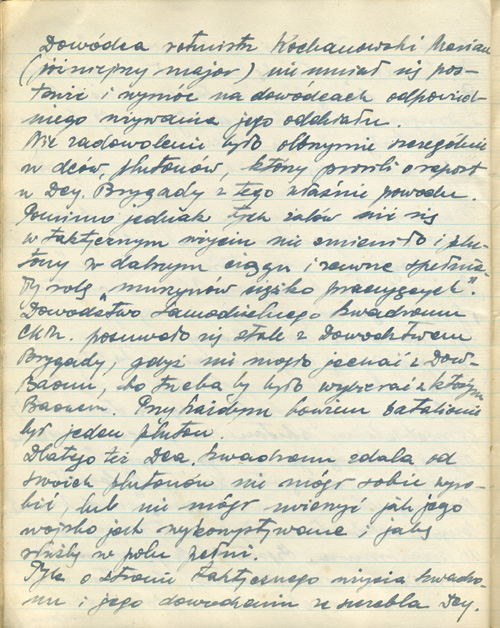 Dowódca rotmistrz Kochanowski Marian
(późniejszy major) nie umiał się pos-
tawić i wymóc na dowódcach odpowied-
niego używania jego oddziału.
Nie zadowolenie było olbrzymie szczególnie
w dców, plutonów, który prosili o raport
u Dcy. Brygady z tego właśnie powodu.
Pomimo jednak tych żalów nic się
w taktycznym użyciu nie zmieniło i plu-
tony w dalszym ciągu i zawsze spełnia-
ły rolę „murzynów ciężko pracujących”.
Dowództwo Samodzielnego Szwadronu
CKM. posuwało się stale z Dowództwem
Brygady, gdyż nie mogło jechać z Dow-
Baonu, bo trzeba by było wybierać z którym
Baonem. Przy każdym bowiem batalionie
był jeden pluton.
Dlatego też Dca. Szwadronu zdala od
swoich plutonów nie mógł sobie wyro-
bić, lub nie mógł wierzyć jak jego
wojsko jest wykorzystywane i jaką
służbę w polu pełni.
Tyle o stronie taktycznego użycia Szwadro-
nu i jego dowodzeniu ze szczebla Dcy.